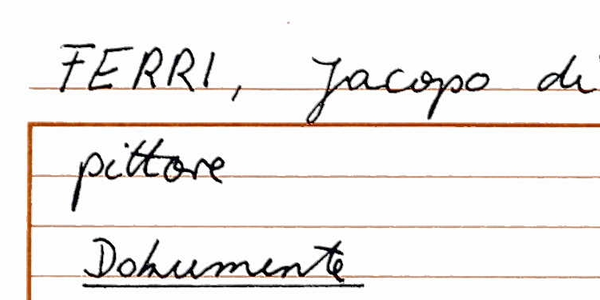 FERRI, Jacopo di
pittore
Dokumente